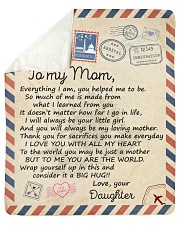 ARRIVAL
12345
IMMIGRATION
To my Mom,
Everything I am, you helped me to be.
So much of me is made from
what I learned from you
It doesn't matter how far I go in life,
I will always be your little girl.
And you will always be my loving mother.
Thank you for sacrifices you make everyday
I LOVE YOU WITH ALL MY HEART
To the world you may be just a mother
BUT TO ME YOU ARE THE WORLD.
Wrap yourself up in this and
consider it a BIG HUG!!
Love, your
Daughter